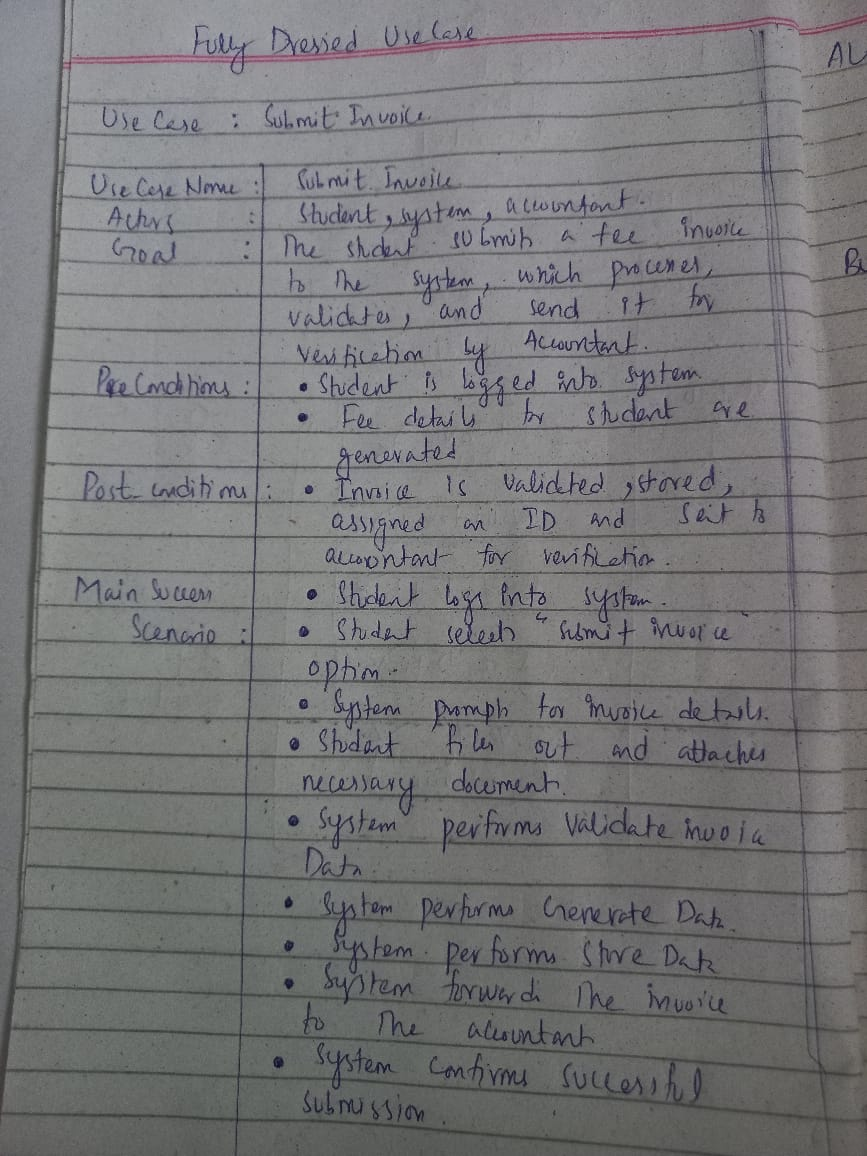 Fully Dressed Use Case
AL
Use Case : Submit Invoice.
Use Case Name : Submit Invoice
Actors : Student, system, accountant.
Goal : The student submits a fee invoice
to the system, which processes,
validates, and send it for
verification by Accountant.
Pre Conditions : • Student is logged into system
• Fee details for student are
generated
Post-conditions : • Invoice is validated, stored,
assigned an ID and sent to
accountant for verification.
Main Success • Student logs into system.
Scenario : • Student selects "submit invoice"
option.
• System prompts for invoice details.
• Student files out and attaches
necessary document.
• System performs Validate invoice
Data
• System performs Generate Data.
• System performs Store Data
• System forwards The invoice
to The accountant
• System confirms successful
submission.